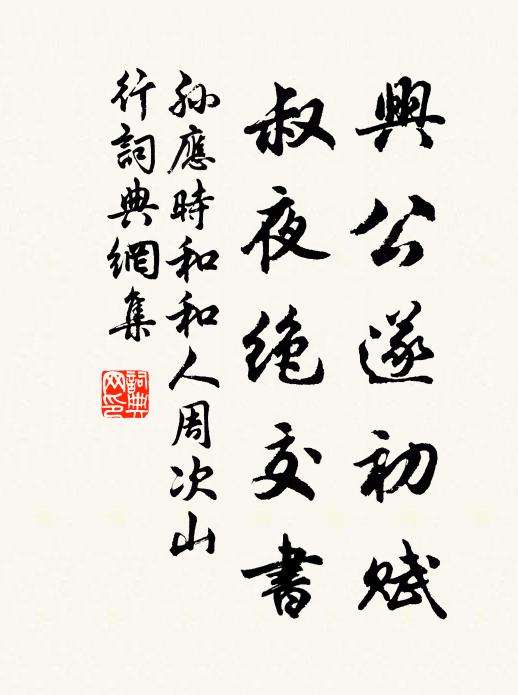 興公遂初賦
叔夜絶交書
孫應時和和人周次山
行詞典網集
詞典网印